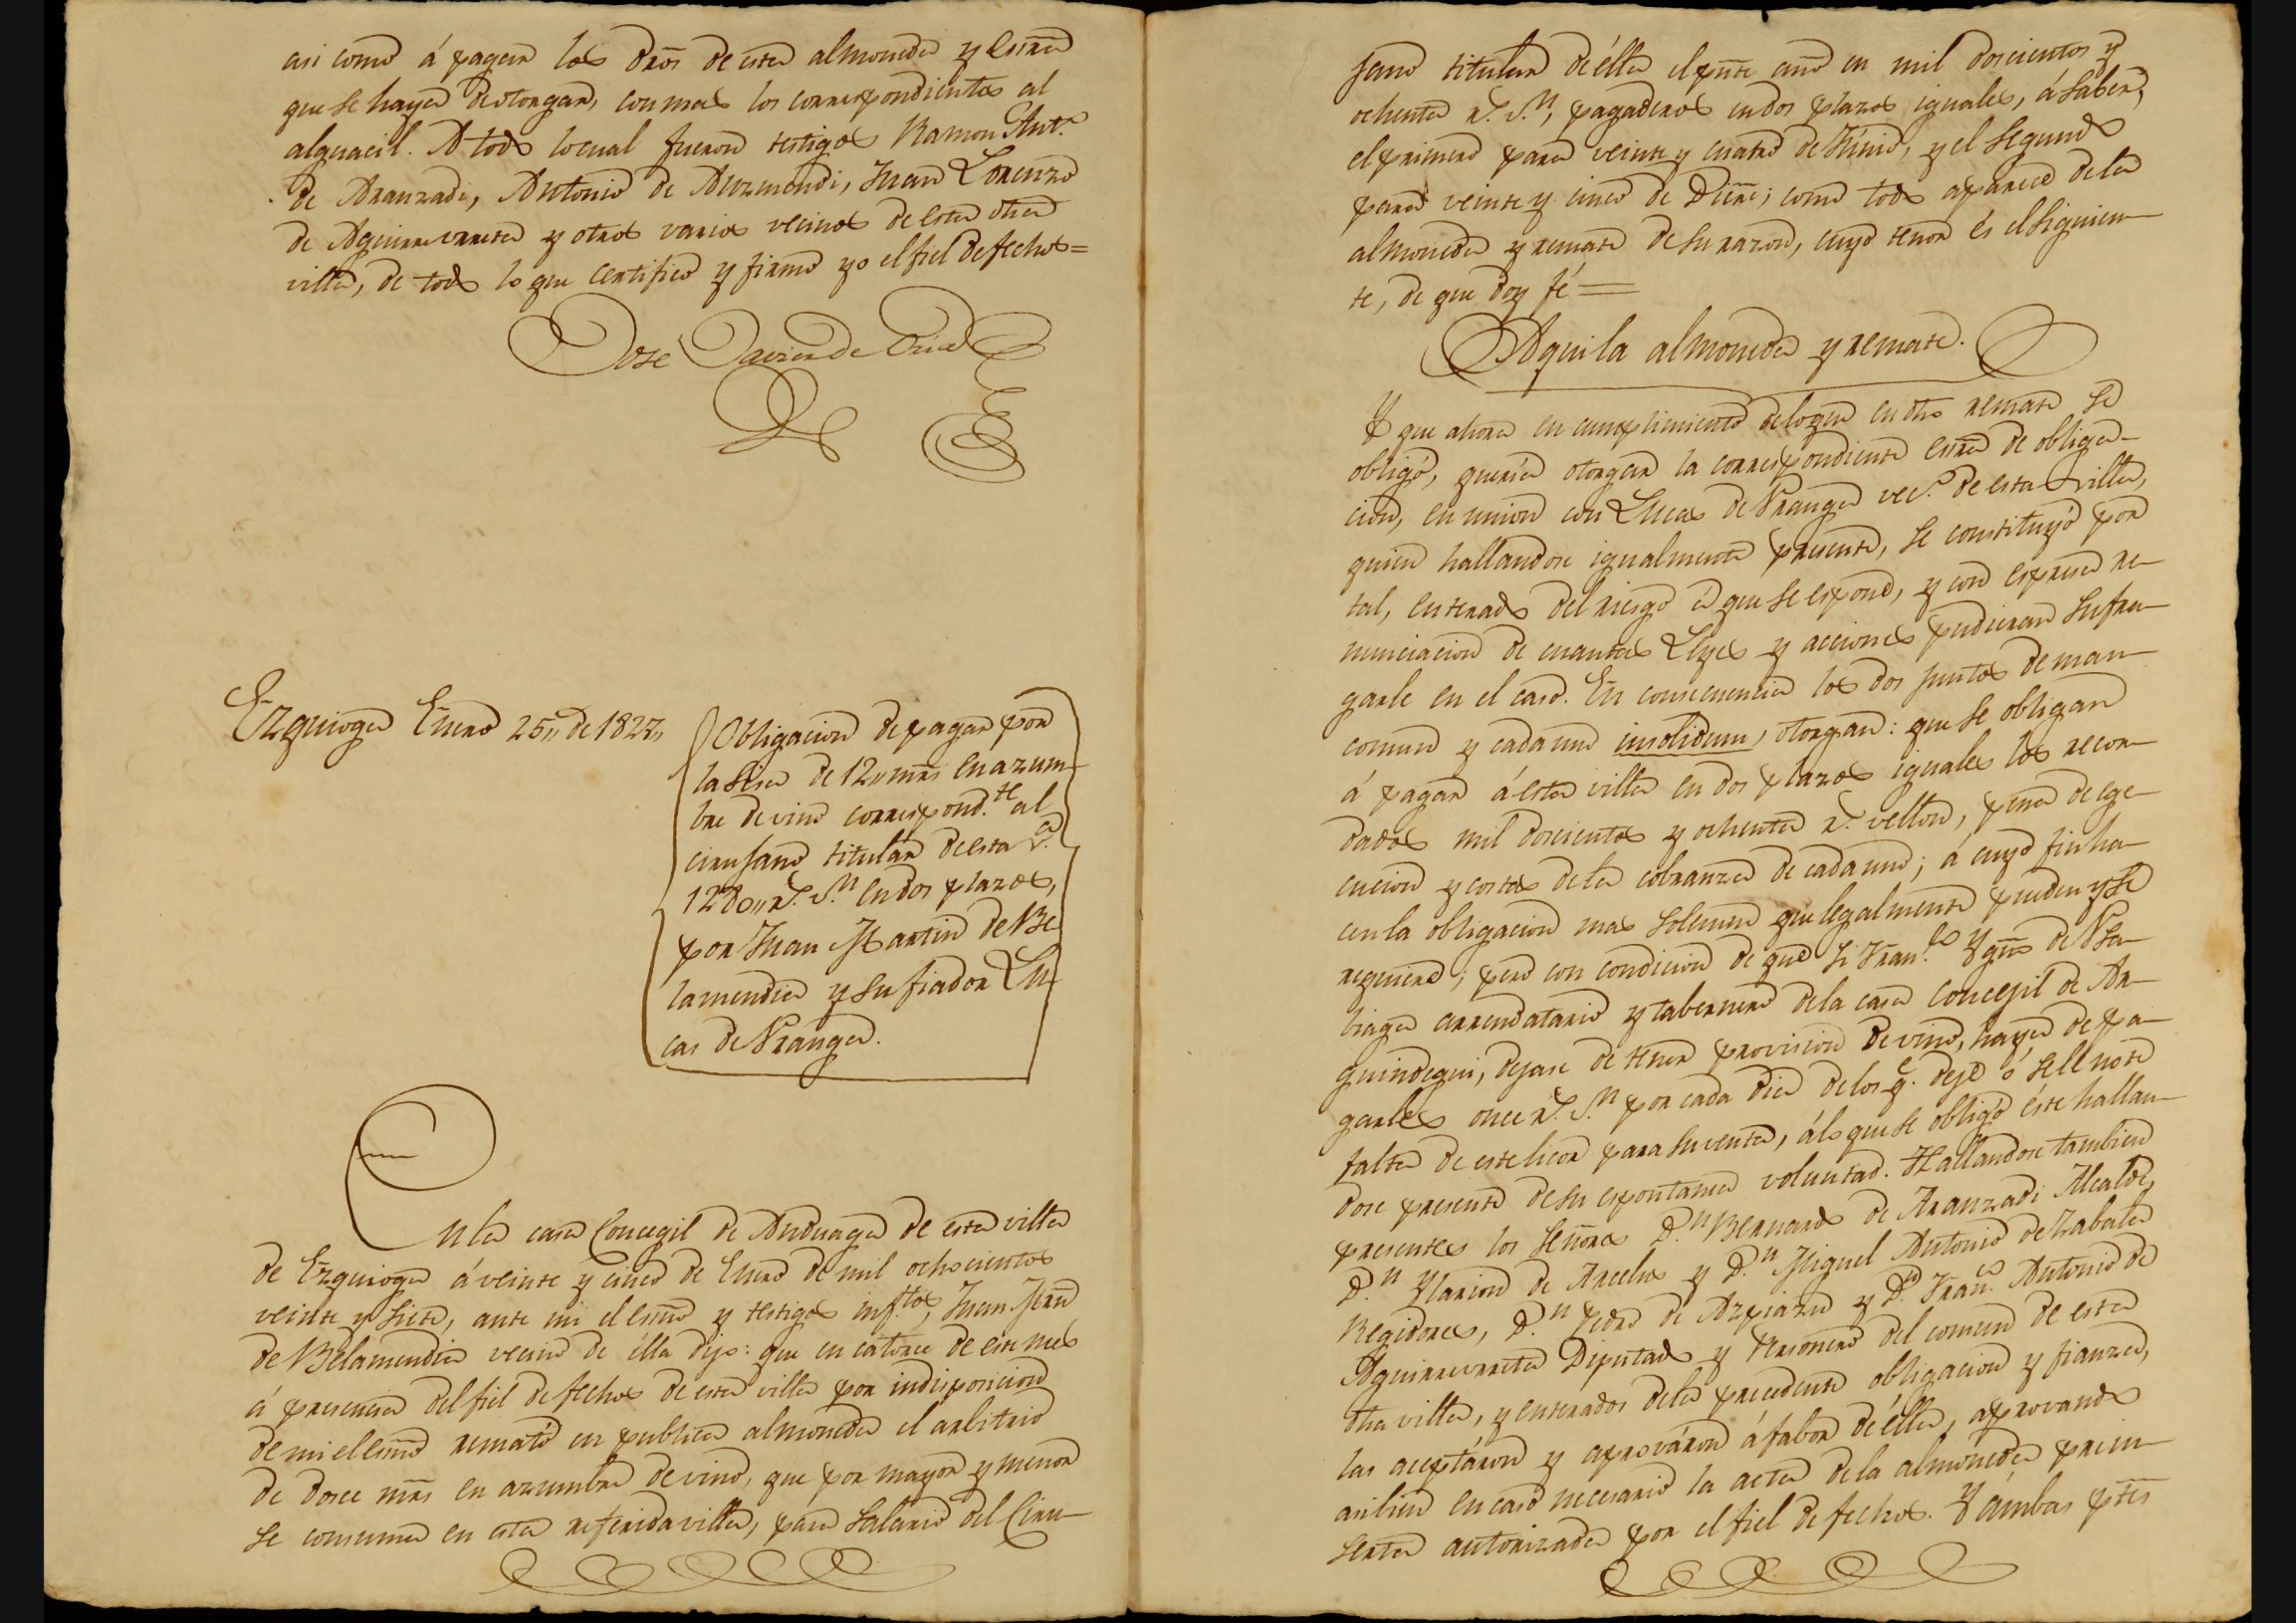 asi como á pagar los dros. de esta almoneda y essrã
que se haya de otorgar, con mas los correspondientes al
alguacil. A todo lo cual fueron testigos Ramon Ant.º
de Aranzadi, Antonio de Auzmendi, Juan Lorenzo
de Aguirreurreta y otros varios vecinos de esta dha
villa, de todo lo que certifico y firmo yo el fiel de fechos=
Jose Javier de Oria
Ezquioga Enero 25,, de 1827,,
Obligacion de pagar por
la sisa de 12,, mrs en azum-
bre de vino correspond.te al
cirujano titular de esta v.ª
1280,, r.s v.n en dos plazos,
por Juan Martin de Be
lamendia y su fiador Lu-
cas de Uranga.
En la casa Concegil de Anduaga de esta villa
de Ezquioga á veinte y cinco de Enero de mil ochocientos
veinte y siete, ante mi el essnõ y testigos inf.tos, Juan Mrñ
de Belamendia vecino de élla dijo: que en catorce de este mes
á presencia del fiel de fechos de esta villa por indisposicion
de mi el essnõ remató en publica almoneda el arbitrio
de doce mrs en azumbre de vino, que por mayor y menor
se consuma en esta referida villa, para salario del Ciru-
jano titular de élla el pñte año en mil doscientos y
ochenta r.s v.n, pagaderos en dos plazos iguales, á saber,
el primero para veinte y cuatro de Junio, y el segundo
para veinte y cinco de Dicrẽ; como todo aparece de la
almoneda y remate de su razon, cuyo tenor és el siguien-
te, de que doy fé =
Aqui la almoneda y remate.
Y que ahora en cumplimiento de lo que en dho remate se
obligó, queria otorgar la correspondiente essrã de obliga-
cion, en union con Lucas de Uranga vec.º de esta villa,
quien hallandose igualmente presente, se constituyó por
tal, enterado del riesgo á que se espone, y con espresa re-
nunciacion de cuantas Leyes y acciones pudieran sufra-
garle en el caso. En consecuencia los dos juntos de man-
comun y cada uno insolidum, otorgan: que se obligan
á pagar á esta villa en dos plazos iguales los recor-
dados mil doscientos y ochenta r.s vellon, pena de ege-
cucion y costas de la cobranza de cada uno; á cuyo fin ha-
cen la obligacion mas solemne que legalmente pueden y se
requiera; pero con condicion de que si Fran.co Ygn.º de Usa-
biaga arrendatario y tabernero de la casa Concegil de Ar-
guindegui, dejase de tener provision de vino, haya de pa-
garles once r.s v.n por cada dia de los q.e deje ó se le note
falta de este licor para su venta, á lo que se obligó éste hallan-
dose presente de su espontanea voluntad. Hallandose tambien
presentes los Señores D.n Bernardo de Aranzadi Alcalde,
D.n Ylarion de Arcelus y D.n Miguel Antonio de Zabaleta
Regidores, D.n Pedro de Azpiazu y D.n Fran.co Antonio de
Aguirreurreta Diputado y Personero del comun de esta
dha villa, y enterados de la precedente obligacion y fianza,
las aceptáron y aprováron á fabor de élla, aprovando
asibien en caso necesario la acta de la almoneda prein-
serta autorizada por el fiel de fechos. Y ámbas ptẽs